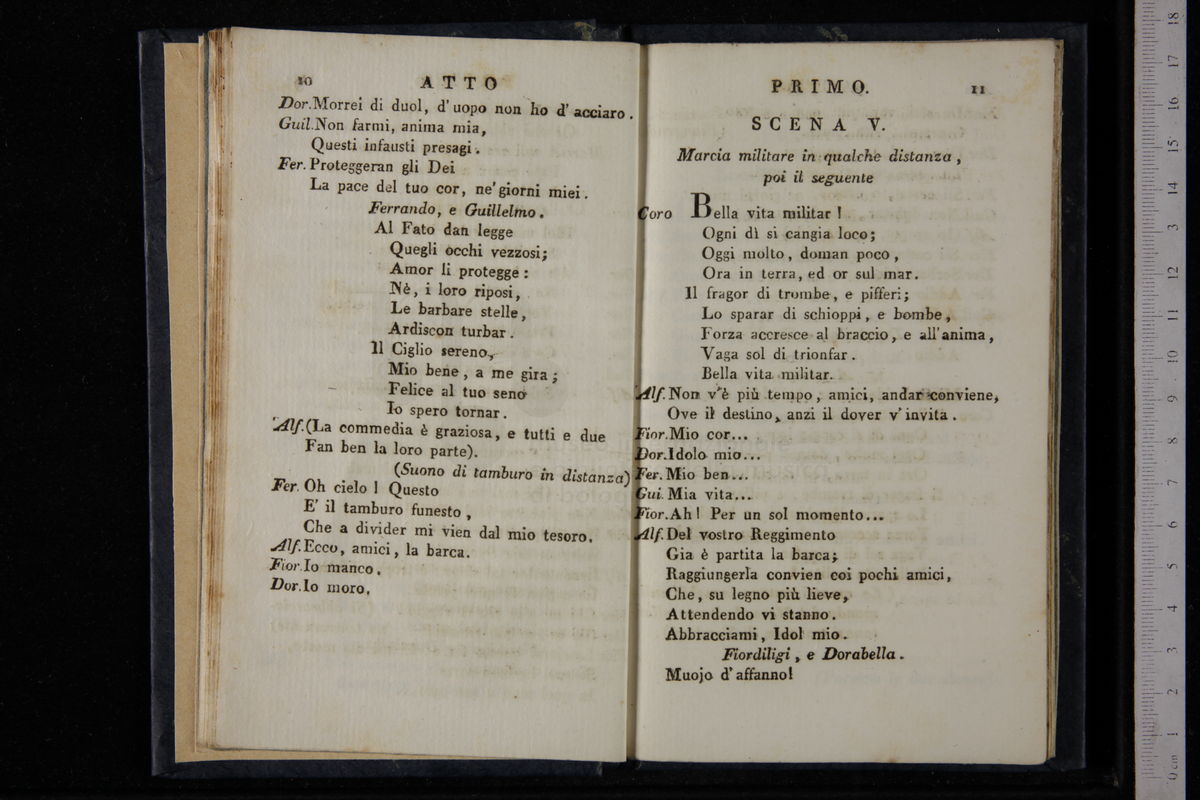 10 ATTO
Dor. Morrei di duol, d'uopo non ho d'acciaro.
Guil. Non farmi, anima mia,
Questi infausti presagi.
Fer. Proteggeran gli Dei
La pace del tuo cor, ne'giorni miei.
Ferrando, e Guillelmo.
Al Fato dan legge
Quegli occhi vezzosi;
Amor li protegge:
Nè, i loro riposi,
Le barbare stelle,
Ardiscon turbar.
Il Ciglio sereno,
Mio bene, a me gira;
Felice al tuo seno
Io spero tornar.
Alf. (La commedia è graziosa, e tutti e due
Fan ben la loro parte).
(Suono di tamburo in distanza)
Fer. Oh cielo! Questo
E' il tamburo funesto,
Che a divider mi vien dal mio tesoro.
Alf. Ecco, amici, la barca.
Fior. Io manco.
Dor. Io moro.
PRIMO. 11
SCENA V.
Marcia militare in qualche distanza,
poi il seguente
Coro Bella vita militar!
Ogni dì si cangia loco;
Oggi molto, doman poco,
Ora in terra, ed or sul mar.
Il fragor di trombe, e pifferi;
Lo sparar di schioppi, e bombe,
Forza accresce al braccio, e all'anima,
Vaga sol di trionfar.
Bella vita militar.
Alf. Non v'è più tempo, amici, andar conviene,
Ove il destino, anzi il dover v'invita.
Fior. Mio cor...
Dor. Idolo mio...
Fer. Mio ben...
Gui. Mia vita...
Fior. Ah! Per un sol momento...
Alf. Del vostro Reggimento
Gia è partita la barca;
Raggiungerla convien coi pochi amici,
Che, su legno più lieve,
Attendendo vi stanno.
Abbracciami, Idol mio.
Fiordiligi, e Dorabella.
Muojo d'affanno!
0 cm 1 2 3 4 5 6 7 8 9 10 11 12 13 14 15 16 17 18